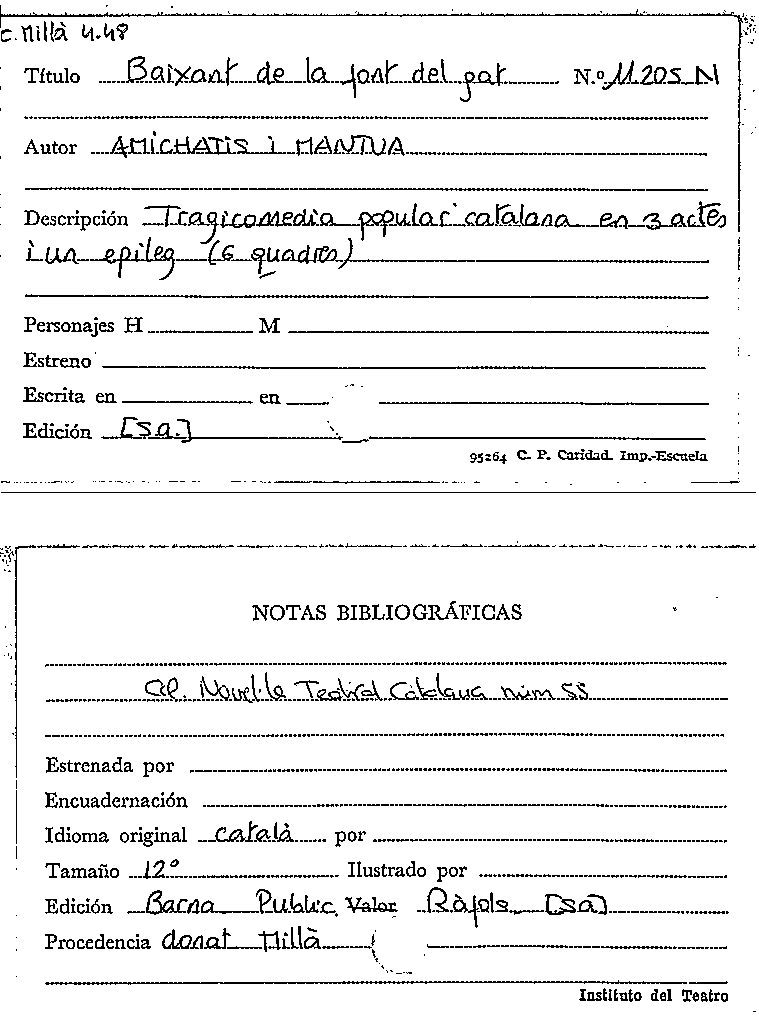 C. Millà 4.48
Título Baixant de la font del gat N.º 11.205 N
Autor AMICHATIS i MANTUA
Descripción Tragicomedia popular catalana en 3 actes
i un epíleg (6 quadres)
Personajes H M
Estreno
Escrita en en
Edición [s.a.]
95264 C. P. Caridad. Imp.-Escuela
NOTAS BIBLIOGRÁFICAS
Col. Novel·la Teatral Catalana núm 55
Estrenada por
Encuadernación
Idioma original català por
Tamaño 12º Ilustrado por
Edición Barna Public. Valor Ràfols [sa]
Procedencia donat Millà
Instituto del Teatro